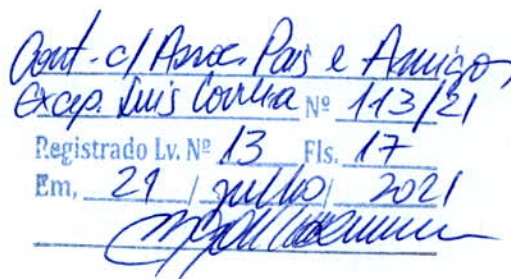 Cont. c/ Assoc. Pais e Amigos
Excep. Luis Correia Nº 113/21
Registrado Lv. Nº 13 Fls. 17
Em, 21 / julho / 2021